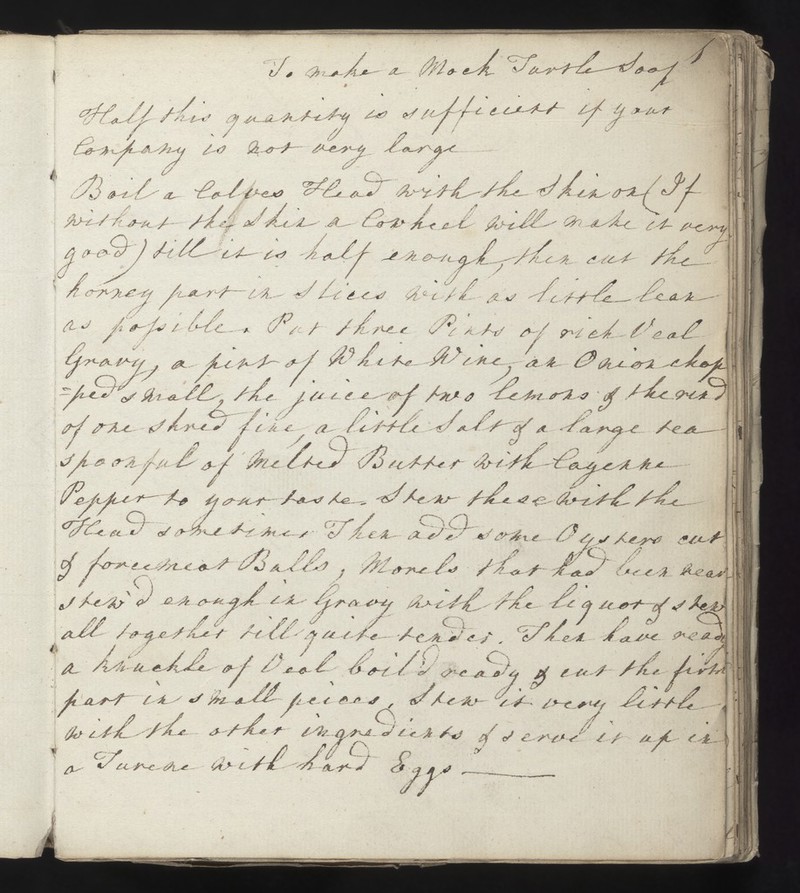 To make a Mock Turtle Soop
Half this quantity is sufficient if your
Company is not very large
Boil a Calves Head with the Skin on (If
without the Skin a Cowheel will make it very
good) till it is half enough, then cut the
horney part in Slices with as little lean
as possible. Put three Pints of rich Veal
Gravy, a pint of White Wine, an Onion chop
=ped small, the juice of two lemons & the rind
of one shred fine, a little Salt & a large tea
spoonful of Melted Butter with Cayenne
Pepper to your taste. Stew these with the
Head sometimes Then add some Oysters cut
& forcemeat Balls, Morels that had been near
stew'd enough in Gravy with the liquor & stew
all together till quite tender. Then have ready
a knuckle of Veal boil'd ready & cut the
part in small peices, Stew it very little
with the other ingredients & serve it up in
a Turene with hard Eggs